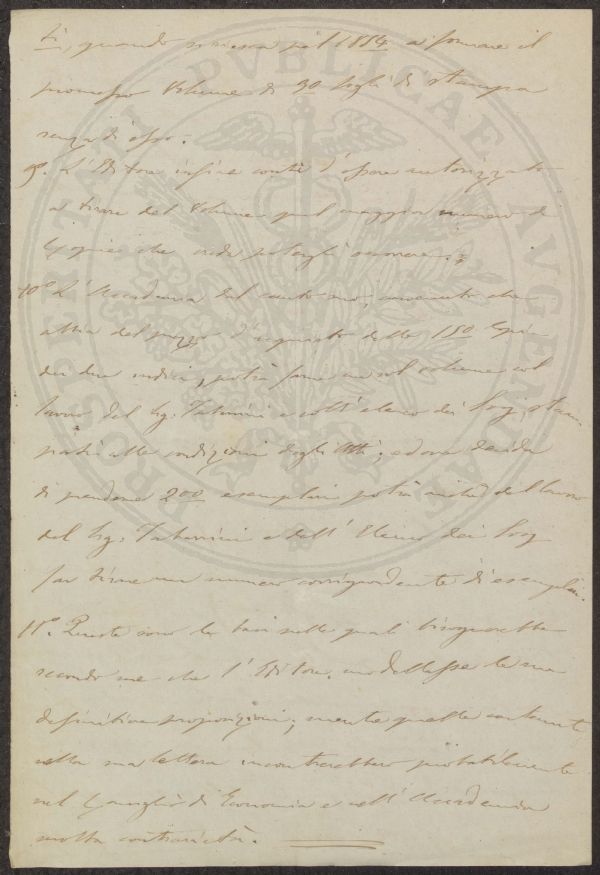 ti, quando si mesca pel 1884 a formare il
promesso Volume di 30 fogli di stampa
senza di esso.
9°. L'Editore infine conti d'essere autorizzato
a tirare del Volume quel maggior numero di
Copie che creda potergli
10° L'Accademia dal canto suo,
del prezzo d'acquisto delle 150 Copie
dei due indici, potrà farne un sol volume col
lavoro del Sig. e coll'elenco dei Soci,
alle condizioni degli Atti; ed ove decida
di prendere 200 esemplari potrà del lavoro
del Sig. e dell'Elenco dei Soci
far tirare un numero corrispondente di esemplari.
11°. Queste sono le basi sulle quali bisognerebbe
secondo me che l'Editore modellasse le sue
definitive proposizioni, mentre quelle contenute
nella sua lettera incontrerebbero probabilmente
nel Consiglio di Economia e nell'Accademia
molta contrarietà.
PROSPERITATI PVBLICAE AVGENDAE